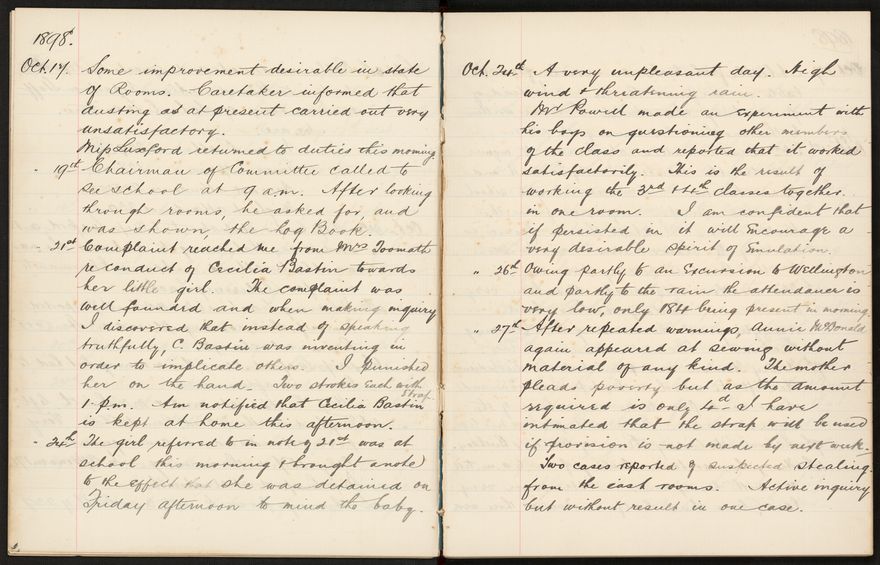 1898.
Oct. 17. Some improvement desirable in state
of Rooms. Caretaker informed that
dusting as at present carried out very
unsatisfactory.
Miss Luxford returned to duties this morning
" 19th Chairman of Committee called to
see school at 9 a.m. After looking
through rooms, he asked for, and
was shown, the Log Book.
" 21st Complaint reached me from Mrs Toomath
re conduct of Cecilia Bastin towards
her little girl. The complaint was
well founded and when making inquiry
I discovered that instead of speaking
truthfully, C. Bastin was inventing in
order to implicate others. I punished
her on the hand. Two strokes each with
strap
1 p.m. Am notified that Cecilia Bastin
is kept at home this afternoon.
" 24th The girl referred to in note of 21st was at
school this morning & brought a note
to the effect that she was detained on
Friday afternoon to mind the baby.
Oct. 24th A very unpleasant day. High
wind & threatening rain.
Mr Powell made an experiment with
his boys on questioning other members
of the class and reported that it worked
satisfactorily. This is the result of
working the 3rd & 4th classes together
in one room. I am confident that
if persisted in it will encourage a
very desirable spirit of Emulation.
" 26th Owing partly to an Excursion to Wellington
and partly to the rain the attendance is
very low, only 184 being present in morning.
" 27th After repeated warnings, Annie McDonald
again appeared at sewing without
material of any kind. The mother
pleads poverty but as the amount
required is only 4d I have
intimated that the strap will be used
if provision is not made by next week.
Two cases reported of suspected stealing
from the east rooms. Active inquiry
but without result in one case.